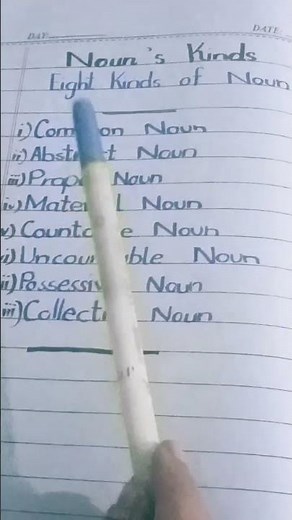 DAY
DATE
Noun's Kinds
Eight Kinds of Noun
i) Common Noun
ii) Abstract Noun
iii) Proper Noun
iv) Material Noun
v) Countable Noun
i) Uncountable Noun
ii) Possessive Noun
iii) Collective Noun